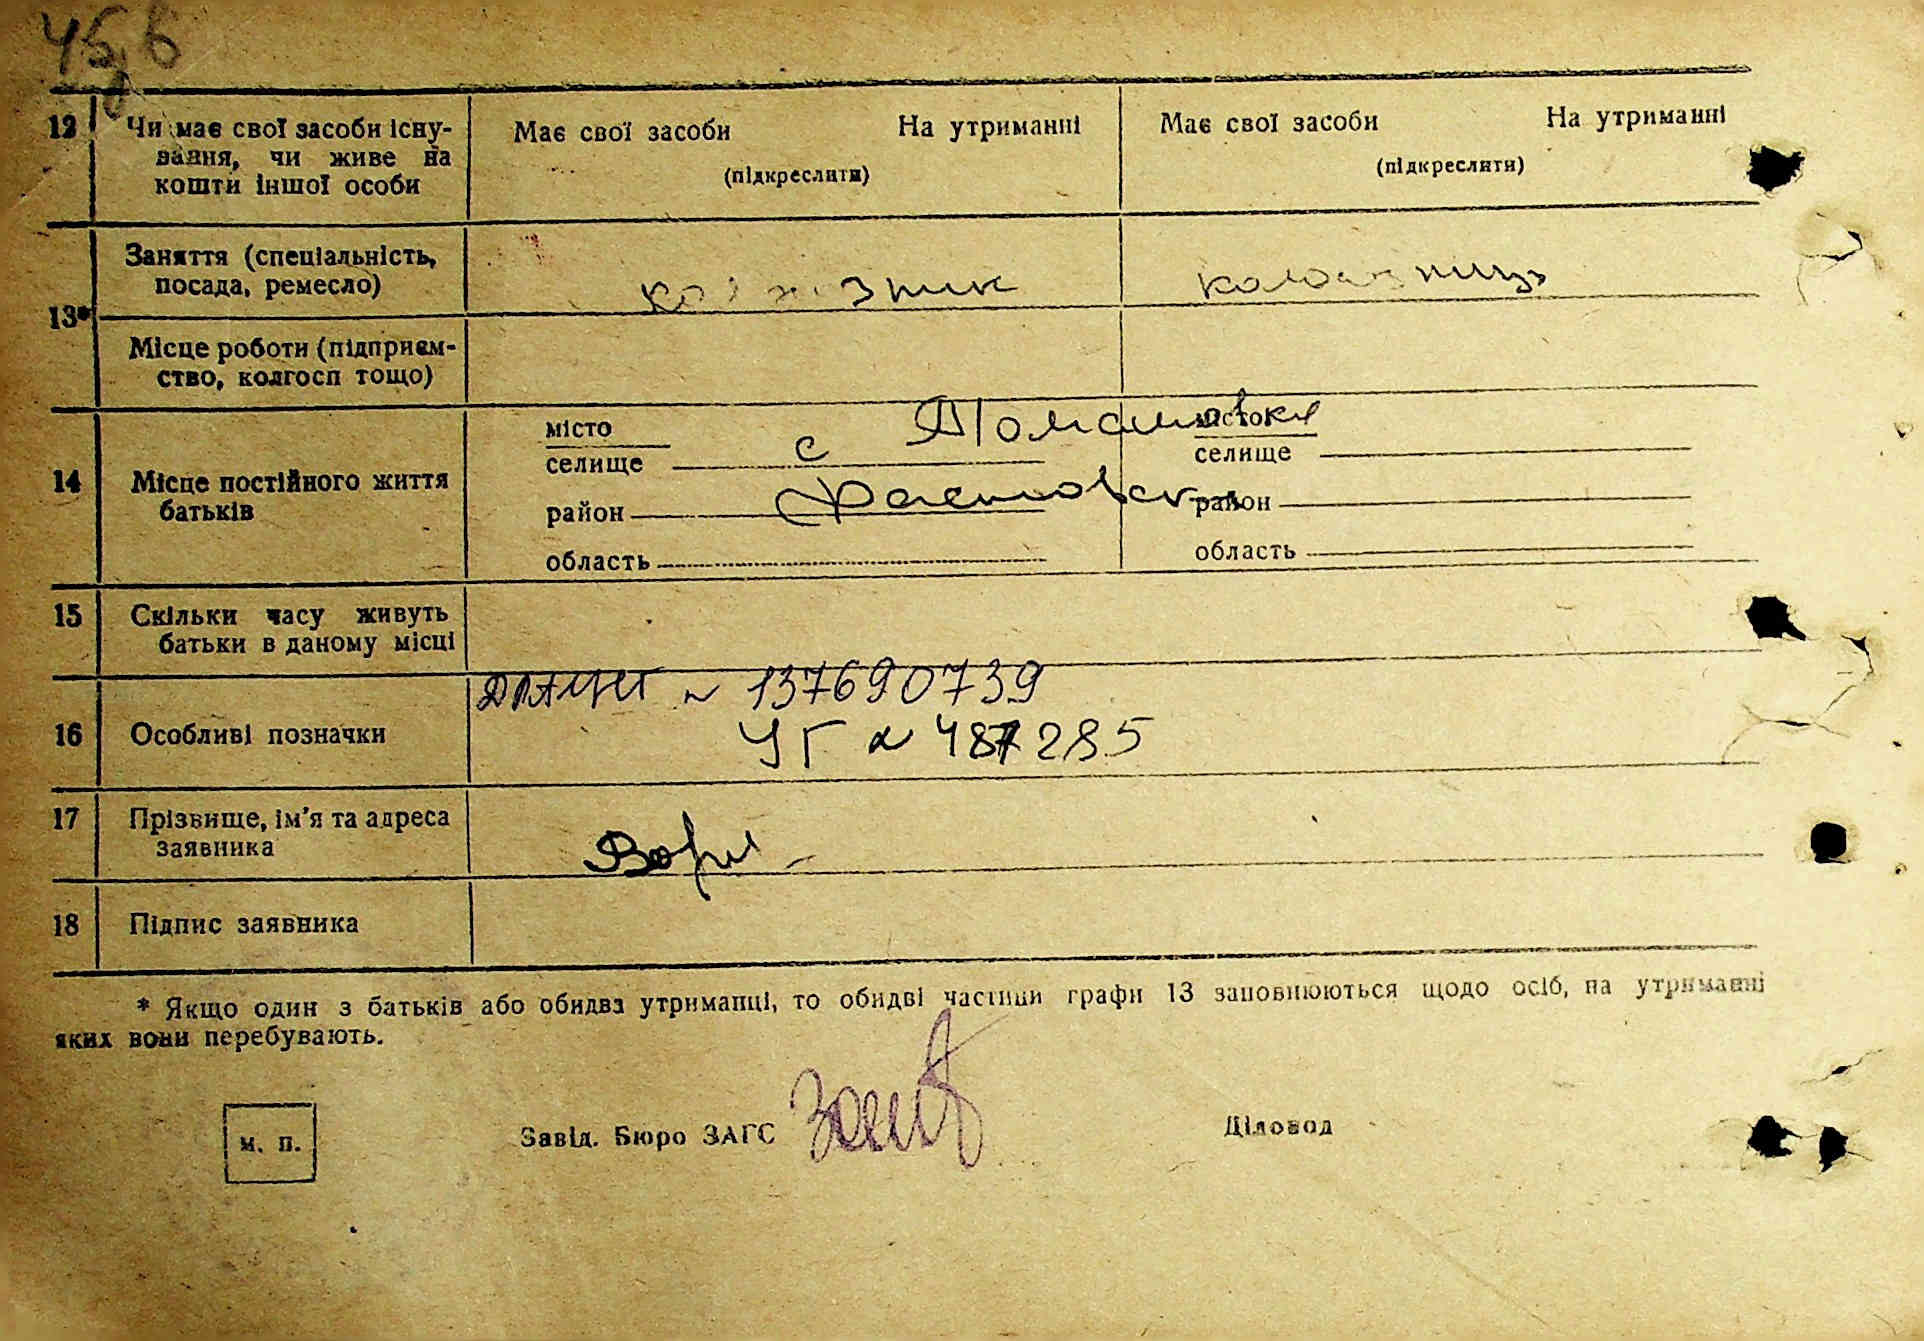 45,6
12 Чи має свої засоби існу- Має свої засоби На утриманні Має свої засоби На утриманні
вання, чи живе на (підкреслити) (підкреслити)
кошти іншої особи
Заняття (спеціальність,
посада, ремесло) колгоспниця
13*
Місце роботи (підприєм-
ство, колгосп тощо)
місто с Томашовка місто
селище селище
14 Місце постійного життя
батьків
район Фастовск район
область область
15 Скільки часу живуть
батьки в даному місці
№ 137690739
16 Особливі позначки УГ № 487285
17 Прізвище, ім'я та адреса
заявника
18 Підпис заявника
* Якщо один з батьків або обидва утриманці, то обидві частини графи 13 заповнюються щодо осіб, на утриманні
яких вони перебувають.
м. п. Завід. Бюро ЗАГС Діловод